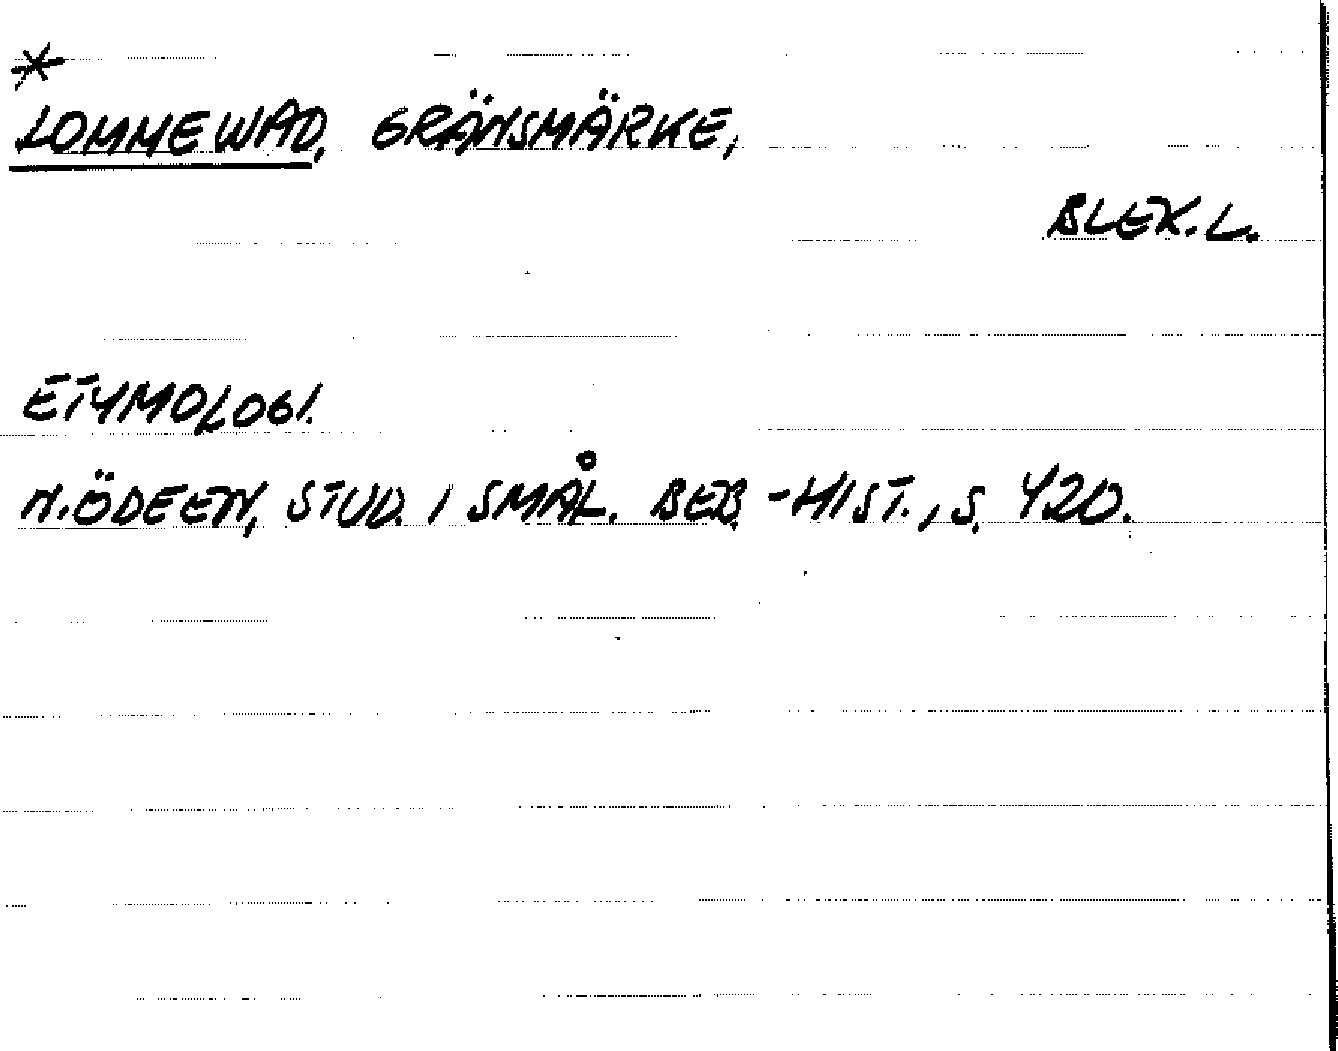 *
LOMMEWAD, GRÄNSMÄRKE,
BLEK. L.
ETYMOLOGI.
N. ÖDEEN, STUD. I SMÅL. BEB.-HIST., S. 420.